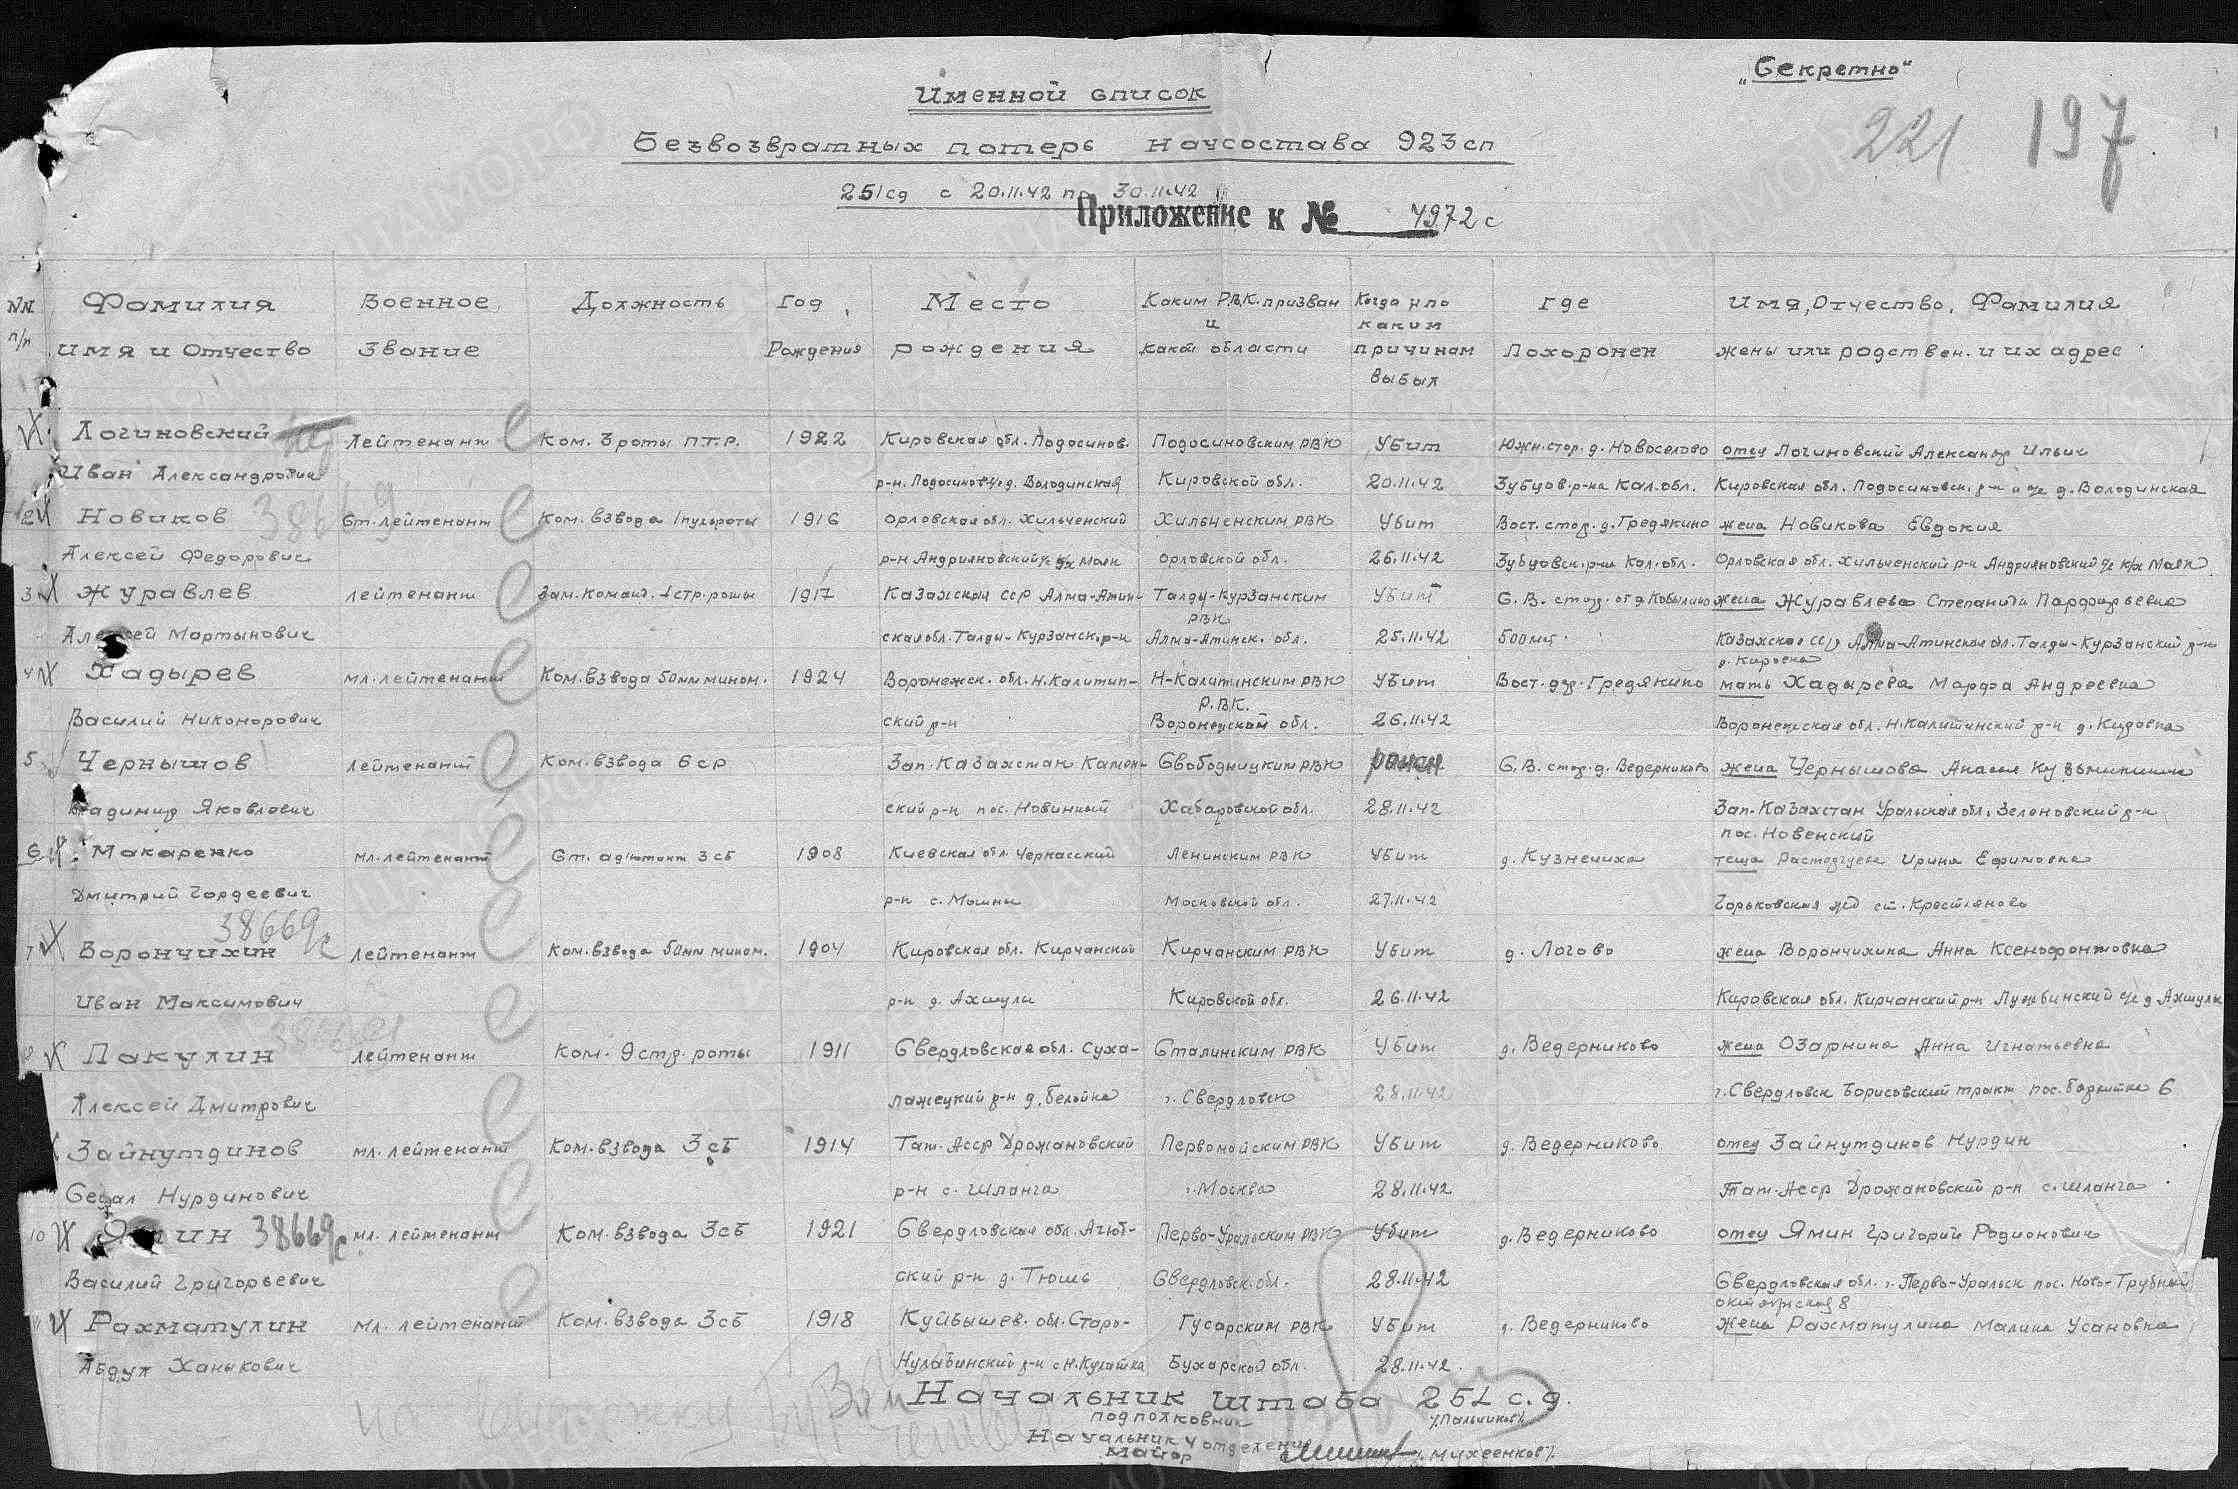 „Секретно"
Именной список
221 197
Безвозвратных потерь начсостава 923 сп
251 сд с 20.11.42 по 30.11.42
Приложение к № 4972 с
NN п/п
Фамилия имя и Отчество
Военное Звание
Должность
Год Рождения
Место рождения
Каким РВК призван и какой области
Когда и по каким причинам выбыл
Где Похоронен
Имя, Отчество, Фамилия жены или родствен. и их адрес
Логиновский Лейтенант Ком. роты п.т.р. 1922 Кировская обл. Подосинов. Подосиновским РВК Убит Южн. стор. д. Новоселово отец Логиновский Александр Ильич
Иван Александрович р-н. д. Володинская Кировской обл. 20.11.42 Зубцов. р-на Кал. обл. Кировская обл. Подосиновск. р-н д. Володинская
2 Новиков 38669 Ст. лейтенант Ком. взвода 1 пульроты 1916 Орловская обл. Хильченский Хильченским РВК Убит Вост. стор. д. Гредякино жена Новикова Евдокия
Алексей Федорович р-н Андрияновский Маяк Орловской обл. 26.11.42 Зубцовск. р-на Кал. обл. Орловская обл. Хильченский р-н Андрияновский Маяк
3 Журавлев лейтенант Зам. команд. стр. роты 1917 Казахская ССР Алма-Атин- Талды-Курзанским РВК Убит С.В. стор. от д. Кобылино жена Журавлева Степанида Парфирьевна
Алексей Мартынович ская обл. Талды-Курзанск. р-н Алма-Атинск. обл. 25.11.42 500 мт. Казахская ССР Алма-Атинская обл. Талды-Курзанский р-н
4 Хадырев мл. лейтенант Ком. взвода 50мм мином. 1924 Воронежск. обл. Н. Калитин- Н-Калитинским РВК Убит Вост. дер. Гредякино мать Хадырева Марфа Андреевна
Р.В.К.
Василий Никонорович ский р-н Воронежской обл. 26.11.42 Воронежская обл. Н. Калитинский р-н д.
5 Чернышов лейтенант Ком. взвода 6 ср Зап. Казахстан Камен- Свободницким РВК ранен С.В. стор. д. Ведерниково жена Чернышова
Владимир Яковлевич ский р-н пос. Новинный Хабаровской обл. 28.11.42 Зап. Казахстан Уральская обл. Зеленовский р-н
пос. Новенский
6 Макаренко мл. лейтенант Ст. адъютант 3 сб 1908 Киевская обл. Черкасский Ленинским РВК Убит д. Кузнечиха теща Ирина Ефимовна
Дмитрий Гордеевич р-н с. Мошны Московской обл. 27.11.42 Горьковская жд ст.
38669с
7 Ворончихин лейтенант Ком. взвода 50мм мином. 1904 Кировская обл. Кирчанский Кирчанским РВК Убит д. Логово жена Ворончихина Анна Ксенофонтовна
Иван Максимович р-н д. Ахмули Кировской обл. 26.11.42 Кировская обл. Кирчанский р-н д. Ахмули
8 Пакулин лейтенант Ком. 9 стр. роты 1911 Свердловская обл. Суха- Сталинским РВК Убит д. Ведерниково жена Озарнина Анна Игнатьевна
Алексей Дмитрович ложецкий р-н д. Белейка г. Свердловск 28.11.42 г. Свердловск Борисовский тракт пос. 6
Зайнутдинов мл. лейтенант Ком. взвода 3 сб 1914 Тат. Асср Дрожановский Первомайским РВК Убит д. Ведерниково отец Зайнутдинов Нурдин
Нурдинович р-н с. Шланга г. Москва 28.11.42 Тат. Асср Дрожановский р-н с. Шланга
10 Ямин 38669с мл. лейтенант Ком. взвода 3 сб 1921 Свердловская обл. Ачит- Перво-Уральским РВК Убит д. Ведерниково отец Ямин Григорий Родионович
Василий Григорьевич ский р-н д. Тюшь Свердловск. обл. 28.11.42 Свердловская обл. г. Перво-Уральск пос. Ново-Трубный
Октябрьская 8
11 Рахматулин мл. лейтенант Ком. взвода 3 сб 1918 Куйбышев. обл. Старо- Гусарским РВК Убит д. Ведерниково жена Рахматулина Малика Усановна
Абдул Ханыкович Кулаткинский р-н с. Н. Кулатка Бухарской обл. 28.11.42
Начальник штаба 251 с.д.
подполковник /Пальчиков/
Начальник 4 отделения
майор /Михеенков/